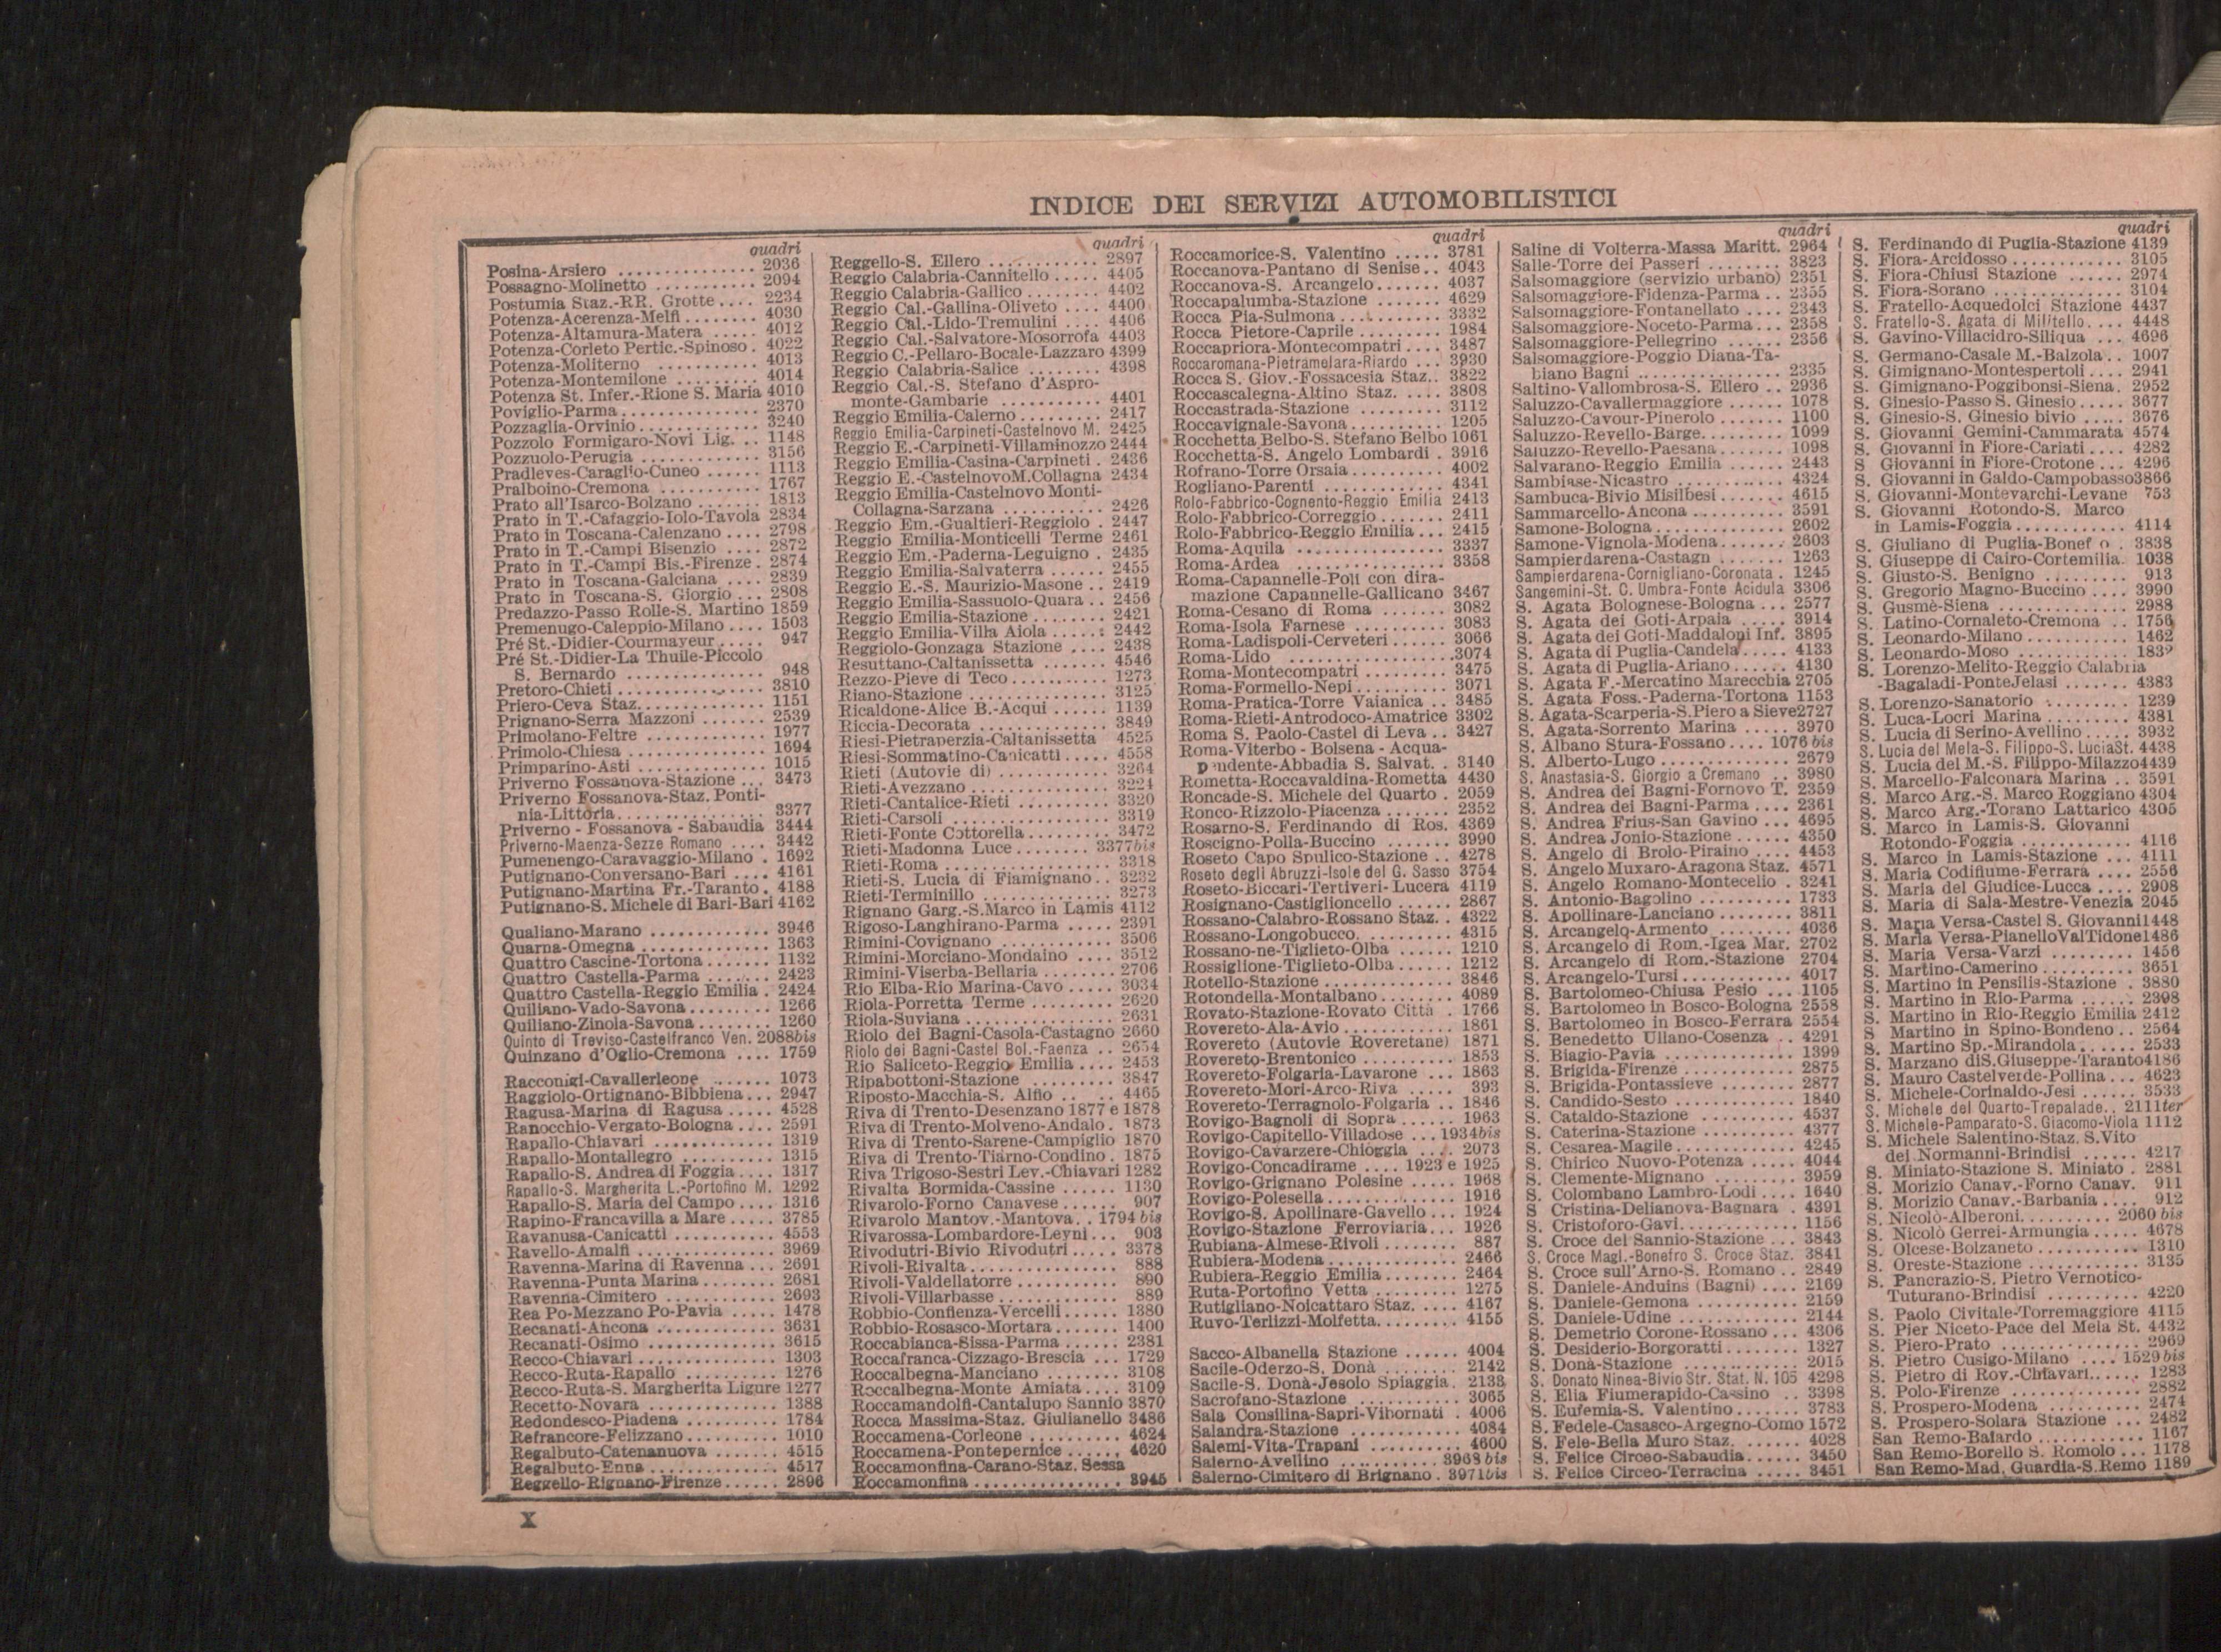 INDICE DEI SERVIZI AUTOMOBILISTICI
quadri
Posina-Arsiero ............... 2036
Possagno-Molinetto ........... 2094
Postumia Staz.-RR. Grotte.... 2234
Potenza-Acerenza-Melfi ........ 4030
Potenza-Altamura-Matera ..... 4012
Potenza-Corleto Pertic.-Spinoso . 4022
Potenza-Moliterno ........... 4013
Potenza-Montemilone ......... 4014
Potenza St. Infer.-Rione S. Maria 4010
Poviglio-Parma............... 2370
Pozzaglia-Orvinio ............. 3240
Pozzolo Formigaro-Novi Lig. .. 1148
Pozzuolo-Perugia ............. 3156
Pradleves-Caraglio-Cuneo ...... 1113
Pralboino-Cremona ........... 1767
Prato all'Isarco-Bolzano ....... 1813
Prato in T.-Cafaggio-Iolo-Tavola 2834
Prato in Toscana-Calenzano .... 2798
Prato in T.-Campi Bisenzio .... 2872
Prato in T.-Campi Bis.-Firenze . 2874
Prato in Toscana-Galciana .... 2839
Prato in Toscana-S. Giorgio ... 2808
Predazzo-Passo Rolle-S. Martino 1859
Premenugo-Caleppio-Milano .... 1503
Pré St.-Didier-Courmayeur ..... 947
Pré St.-Didier-La Thuile-Piccolo
S. Bernardo ............... 948
Pretoro-Chieti ................ 3810
Priero-Ceva Staz.............. 1151
Prignano-Serra Mazzoni ....... 2539
Primolano-Feltre ............. 1977
Primolo-Chiesa ............... 1694
Primparino-Asti .............. 1015
Priverno Fossanova-Stazione ... 3473
Priverno Fossanova-Staz. Ponti-
nia-Littoria................ 3377
Priverno - Fossanova - Sabaudia 3444
Priverno-Maenza-Sezze Romano .... 3442
Pumenengo-Caravaggio-Milano . 1692
Putignano-Conversano-Bari .... 4161
Putignano-Martina Fr.-Taranto . 4188
Putignano-S. Michele di Bari-Bari 4162
Qualiano-Marano ............. 3946
Quarna-Omegna .............. 1363
Quattro Cascine-Tortona ....... 1132
Quattro Castella-Parma ....... 2423
Quattro Castella-Reggio Emilia . 2424
Quiliano-Vado-Savona......... 1266
Quiliano-Zinola-Savona........ 1260
Quinto di Treviso-Castelfranco Ven. 2088bis
Quinzano d'Oglio-Cremona .... 1759
Racconigi-Cavallerleone ....... 1073
Raggiolo-Ortignano-Bibbiena... 2947
Ragusa-Marina di Ragusa ..... 4528
Ranocchio-Vergato-Bologna .... 2591
Rapallo-Chiavari ............. 1319
Rapallo-Montallegro .......... 1315
Rapallo-S. Andrea di Foggia .... 1317
Rapallo-S. Margherita L.-Portofino M. 1292
Rapallo-S. Maria del Campo .... 1316
Rapino-Francavilla a Mare ..... 3785
Ravanusa-Canicatti ........... 4553
Ravello-Amalfi ............... 3969
Ravenna-Marina di Ravenna ... 2691
Ravenna-Punta Marina ........ 2681
Ravenna-Cimitero ............ 2693
Rea Po-Mezzano Po-Pavia ..... 1478
Recanati-Ancona ............. 3631
Recanati-Osimo .............. 3615
Recco-Chiavari ............... 1303
Recco-Ruta-Rapallo .......... 1276
Recco-Ruta-S. Margherita Ligure 1277
Recetto-Novara .............. 1388
Redondesco-Piadena .......... 1784
Refrancore-Felizzano .......... 1010
Regalbuto-Catenanuova ....... 4515
Regalbuto-Enna .............. 4517
Reggello-Rignano-Firenze...... 2896
quadri
Reggello-S. Ellero ............ 2897
Reggio Calabria-Cannitello ..... 4405
Reggio Calabria-Gallico ........ 4402
Reggio Cal.-Gallina-Oliveto .... 4400
Reggio Cal.-Lido-Tremulini .... 4406
Reggio Cal.-Salvatore-Mosorrofa 4403
Reggio C.-Pellaro-Bocale-Lazzaro 4399
Reggio Calabria-Salice ........ 4398
Reggio Cal.-S. Stefano d'Aspro-
monte-Gambarie ........... 4401
Reggio Emilia-Calerno ......... 2417
Reggio Emilia-Carpineti-Castelnovo M. 2425
Reggio E.-Carpineti-Villaminozzo 2444
Reggio Emilia-Casina-Carpineti . 2436
Reggio E.-CastelnovoM.Collagna 2434
Reggio Emilia-Castelnovo Monti-
Collagna-Sarzana ........... 2426
Reggio Em.-Gualtieri-Reggiolo . 2447
Reggio Emilia-Monticelli Terme 2461
Reggio Em.-Paderna-Leguigno . 2435
Reggio Emilia-Salvaterra ...... 2455
Reggio E.-S. Maurizio-Masone .. 2419
Reggio Emilia-Sassuolo-Quara .. 2456
Reggio Emilia-Stazione ........ 2421
Reggio Emilia-Villa Aiola ...... 2442
Reggiolo-Gonzaga Stazione .... 2438
Resuttano-Caltanissetta ....... 4546
Rezzo-Pieve di Teco ........... 1273
Riano-Stazione ............... 3125
Ricaldone-Alice B.-Acqui ...... 1139
Riccia-Decorata .............. 3849
Riesi-Pietraperzia-Caltanissetta 4525
Riesi-Sommatino-Canicatti ..... 4558
Rieti (Autovie di) ............. 3264
Rieti-Avezzano ............... 3224
Rieti-Cantalice-Rieti .......... 3320
Rieti-Carsoli ................. 3319
Rieti-Fonte Cottorella ......... 3472
Rieti-Madonna Luce ........ 3377bis
Rieti-Roma .................. 3318
Rieti-S. Lucia di Fiamignano.. 3232
Rieti-Terminillo .............. 3273
Rignano Garg.-S.Marco in Lamis 4112
Rigoso-Langhirano-Parma ..... 2391
Rimini-Covignano ............ 3506
Rimini-Morciano-Mondaino .... 3512
Rimini-Viserba-Bellaria ........ 2706
Rio Elba-Rio Marina-Cavo ..... 3034
Riola-Porretta Terme ......... 2620
Riola-Suviana ................ 2631
Riolo dei Bagni-Casola-Castagno 2660
Riolo dei Bagni-Castel Bol.-Faenza .. 2654
Rio Saliceto-Reggio Emilia .... 2453
Ripabottoni-Stazione ......... 3847
Riposto-Macchia-S. Alfio .. .. 4465
Riva di Trento-Desenzano 1877 e 1878
Riva di Trento-Molveno-Andalo . 1873
Riva di Trento-Sarene-Campiglio 1870
Riva di Trento-Tiarno-Condino . 1875
Riva Trigoso-Sestri Lev.-Chiavari 1282
Rivalta Bormida-Cassine ...... 1130
Rivarolo-Forno Canavese ...... 907
Rivarolo Mantov.-Mantova. . 1794 bis
Rivarossa-Lombardore-Leyni... 903
Rivodutri-Bivio Rivodutri ..... 3378
Rivoli-Rivalta ................ 888
Rivoli-Valdellatorre ........... 890
Rivoli-Villarbasse ............. 889
Robbio-Confienza-Vercelli...... 1380
Robbio-Rosasco-Mortara ....... 1400
Roccabianca-Sissa-Parma ...... 2381
Roccafranca-Cizzago-Brescia ... 1729
Roccalbegna-Manciano ........ 3108
Roccalbegna-Monte Amiata.... 3109
Roccamandolfi-Cantalupo Sannio 3870
Rocca Massima-Staz. Giulianello 3486
Roccamena-Corleone .......... 4624
Roccamena-Pontepernice ...... 4620
Roccamonfina-Carano-Staz. Sessa
Roccamonfina ............... 3945
quadri
Roccamorice-S. Valentino ..... 3781
Roccanova-Pantano di Senise.. 4043
Roccanova-S. Arcangelo....... 4037
Roccapalumba-Stazione ....... 4629
Rocca Pia-Sulmona ........... 3332
Rocca Pietore-Caprile ......... 1984
Roccapriora-Montecompatri .... 3487
Roccaromana-Pietramelara-Riardo ... 3930
Rocca S. Giov.-Fossacesia Staz.. 3822
Roccascalegna-Altino Staz. .... 3808
Roccastrada-Stazione ......... 3112
Roccavignale-Savona .......... 1205
Rocchetta Belbo-S. Stefano Belbo 1061
Rocchetta-S. Angelo Lombardi . 3916
Rofrano-Torre Orsaia .......... 4002
Rogliano-Parenti ............. 4341
Rolo-Fabbrico-Cognento-Reggio Emilia 2413
Rolo-Fabbrico-Correggio ....... 2411
Rolo-Fabbrico-Reggio Emilia ... 2415
Roma-Aquila ............... 3337
Roma-Ardea ............... 3358
Roma-Capannelle-Poli con dira-
mazione Capannelle-Gallicano 3467
Roma-Cesano di Roma ....... 3082
Roma-Isola Farnese .......... 3083
Roma-Ladispoli-Cerveteri ...... 3066
Roma-Lido .................3074
Roma-Montecompatri ......... 3475
Roma-Formello-Nepi .......... 3071
Roma-Pratica-Torre Vaianica .. 3485
Roma-Rieti-Antrodoco-Amatrice 3302
Roma S. Paolo-Castel di Leva .. 3427
Roma-Viterbo - Bolsena - Acqua-
pendente-Abbadia S. Salvat. . 3140
Rometta-Roccavaldina-Rometta 4430
Roncade-S. Michele del Quarto . 2059
Ronco-Rizzolo-Piacenza ....... 2352
Rosarno-S. Ferdinando di Ros. 4369
Roscigno-Polla-Buccino ....... 3990
Roseto Capo Spulico-Stazione .. 4278
Roseto degli Abruzzi-Isole del G. Sasso 3754
Roseto-Biccari-Tertiveri-Lucera 4119
Rosignano-Castiglioncello ...... 2867
Rossano-Calabro-Rossano Staz. . 4322
Rossano-Longobucco.......... 4315
Rossano-ne-Tiglieto-Olba ...... 1210
Rossiglione-Tiglieto-Olba ...... 1212
Rotello-Stazione .............. 3846
Rotondella-Montalbano ........ 4089
Rovato-Stazione-Rovato Città . 1766
Rovereto-Ala-Avio ............ 1861
Rovereto (Autovie Roveretane) 1871
Rovereto-Brentonico .......... 1853
Rovereto-Folgaria-Lavarone ... 1863
Rovereto-Mori-Arco-Riva ..... 393
Rovereto-Terragnolo-Folgaria .. 1846
Rovigo-Bagnoli di Sopra ...... 1963
Rovigo-Capitello-Villadose ... 1934bis
Rovigo-Cavarzere-Chioggia ... 2073
Rovigo-Concadirame .... 1923 e 1925
Rovigo-Grignano Polesine ..... 1968
Rovigo-Polesella .............. 1916
Rovigo-S. Apollinare-Gavello ... 1924
Rovigo-Stazione Ferroviaria... 1926
Rubiana-Almese-Rivoli ........ 887
Rubiera-Modena .............. 2466
Rubiera-Reggio Emilia ........ 2464
Ruta-Portofino Vetta ......... 1275
Rutigliano-Noicattaro Staz. .... 4167
Ruvo-Terlizzi-Molfetta......... 4155
Sacco-Albanella Stazione ...... 4004
Sacile-Oderzo-S. Donà ........ 2142
Sacile-S. Donà-Jesolo Spiaggia . 2133
Sacrofano-Stazione ........... 3065
Sala Consilina-Sapri-Vibornati . 4006
Salandra-Stazione ............ 4084
Salemi-Vita-Trapani .......... 4600
Salerno-Avellino ........... 3968bis
Salerno-Cimitero di Brignano . 3971bis
quadri
Saline di Volterra-Massa Maritt. 2964
Salle-Torre dei Passeri ........ 3823
Salsomaggiore (servizio urbano) 2351
Salsomaggiore-Fidenza-Parma .. 2355
Salsomaggiore-Fontanellato .... 2343
Salsomaggiore-Noceto-Parma... 2358
Salsomaggiore-Pellegrino ...... 2356
Salsomaggiore-Poggio Diana-Ta-
biano Bagni ................ 2335
Saltino-Vallombrosa-S. Ellero .. 2936
Saluzzo-Cavallermaggiore ...... 1078
Saluzzo-Cavour-Pinerolo ....... 1100
Saluzzo-Revello-Barge......... 1099
Saluzzo-Revello-Paesana....... 1098
Salvarano-Reggio Emilia ...... 2443
Sambiase-Nicastro ............ 4324
Sambuca-Bivio Misilbesi....... 4615
Sammarcello-Ancona .......... 3591
Samone-Bologna .............. 2602
Samone-Vignola-Modena....... 2603
Sampierdarena-Castagn ....... 1263
Sampierdarena-Cornigliano-Coronata . 1245
Sangemini-St. C. Umbra-Fonte Acidula 3306
S. Agata Bolognese-Bologna ... 2577
S. Agata dei Goti-Arpaia ..... 3914
S. Agata dei Goti-Maddaloni Inf. 3895
S. Agata di Puglia-Candela ..... 4133
S. Agata di Puglia-Ariano...... 4130
S. Agata F.-Mercatino Marecchia 2705
S. Agata Foss.-Paderna-Tortona 1153
S. Agata-Scarperia-S.Piero a Sieve2727
S. Agata-Sorrento Marina ..... 3970
S. Albano Stura-Fossano .... 1076 bis
S. Alberto-Lugo .............. 2679
S. Anastasia-S. Giorgio a Cremano .. 3980
S. Andrea dei Bagni-Fornovo T. 2359
S. Andrea dei Bagni-Parma .... 2361
S. Andrea Frius-San Gavino ... 4695
S. Andrea Jonio-Stazione ...... 4350
S. Angelo di Brolo-Piraino .... 4453
S. Angelo Muxaro-Aragona Staz. 4571
S. Angelo Romano-Montecelio . 3241
S. Antonio-Bagolino .......... 1733
S. Apollinare-Lanciano ........ 3811
S. Arcangelo-Armento ........ 4036
S. Arcangelo di Rom.-Igea Mar. 2702
S. Arcangelo di Rom.-Stazione 2704
S. Arcangelo-Tursi ............ 4017
S. Bartolomeo-Chiusa Pesio ... 1105
S. Bartolomeo in Bosco-Bologna 2558
S. Bartolomeo in Bosco-Ferrara 2554
S. Benedetto Ullano-Cosenza .. 4291
S. Biagio-Pavia .............. 1399
S. Brigida-Firenze ............ 2875
S. Brigida-Pontassieve ........ 2877
S. Candido-Sesto ............. 1840
S. Cataldo-Stazione ........... 4537
S. Caterina-Stazione .......... 4377
S. Cesarea-Magile ............. 4245
S. Chirico Nuovo-Potenza ..... 4044
S. Clemente-Mignano ......... 3959
S. Colombano Lambro-Lodi .... 1640
S. Cristina-Delianova-Bagnara . 4391
S. Cristoforo-Gavi............ 1156
S. Croce del Sannio-Stazione ... 3843
S. Croce Magl.-Bonefro S. Croce Staz. 3841
S. Croce sull'Arno-S. Romano .. 2849
S. Daniele-Anduins (Bagni) .... 2169
S. Daniele-Gemona ........... 2159
S. Daniele-Udine ............. 2144
S. Demetrio Corone-Rossano ... 4306
S. Desiderio-Borgoratti ........ 1327
S. Donà-Stazione ............. 2015
S. Donato Ninea-Bivio Str. Stat. N. 105 4298
S. Elia Fiumerapido-Cassino .. 3398
S. Eufemia-S. Valentino ....... 3783
S. Fedele-Casasco-Argegno-Como 1572
S. Fele-Bella Muro Staz. ....... 4028
S. Felice Circeo-Sabaudia...... 3450
S. Felice Circeo-Terracina ..... 3451
quadri
S. Ferdinando di Puglia-Stazione 4139
S. Fiora-Arcidosso ............ 3105
S. Fiora-Chiusi Stazione ...... 2974
S. Fiora-Sorano .............. 3104
S. Fratello-Acquedolci Stazione 4437
S. Fratello-S. Agata di Militello.... 4448
S. Gavino-Villacidro-Siliqua ... 4696
S. Germano-Casale M.-Balzola .. 1007
S. Gimignano-Montespertoli .... 2941
S. Gimignano-Poggibonsi-Siena. 2952
S. Ginesio-Passo S. Ginesio ..... 3677
S. Ginesio-S. Ginesio bivio ..... 3676
S. Giovanni Gemini-Cammarata 4574
S. Giovanni in Fiore-Cariati .... 4282
S Giovanni in Fiore-Crotone ... 4296
S. Giovanni in Galdo-Campobasso3866
S. Giovanni-Montevarchi-Levane 753
S. Giovanni Rotondo-S. Marco
in Lamis-Foggia ............ 4114
S. Giuliano di Puglia-Bonef o . 3838
S. Giuseppe di Cairo-Cortemilia. 1038
S. Giusto-S. Benigno ......... 913
S. Gregorio Magno-Buccino .... 3990
S. Gusmè-Siena .............. 2988
S. Latino-Cornaleto-Cremona .. 1756
S. Leonardo-Milano ........... 1462
S. Leonardo-Moso ............ 1832
S. Lorenzo-Melito-Reggio Calabria
-Bagaladi-PonteJelasi ....... 4383
S. Lorenzo-Sanatorio ......... 1239
S. Luca-Locri Marina ......... 4381
S. Lucia di Serino-Avellino ..... 3932
S. Lucia del Mela-S. Filippo-S. LuciaSt. 4438
S. Lucia del M.-S. Filippo-Milazzo4439
S. Marcello-Falconara Marina .. 3591
S. Marco Arg.-S. Marco Roggiano 4304
S. Marco Arg.-Torano Lattarico 4305
S. Marco in Lamis-S. Giovanni
Rotondo-Foggia ............ 4116
S. Marco in Lamis-Stazione ... 4111
S. Maria Codifiume-Ferrara .... 2556
S. Maria del Giudice-Lucca .... 2908
S. Maria di Sala-Mestre-Venezia 2045
S. Maria Versa-Castel S. Giovanni1448
S. Maria Versa-PianelloValTidone1486
S. Maria Versa-Varzi .......... 1456
S. Martino-Camerino .......... 3651
S. Martino in Pensilis-Stazione . 3880
S. Martino in Rio-Parma ...... 2398
S. Martino in Rio-Reggio Emilia 2412
S. Martino in Spino-Bondeno .. 2564
S. Martino Sp.-Mirandola...... 2533
S. Marzano diS.Giuseppe-Taranto4186
S. Mauro Castelverde-Pollina ... 4623
S. Michele-Corinaldo-Jesi ...... 3533
S. Michele del Quarto-Trepalade.. 2111ter
S. Michele-Pamparato-S. Giacomo-Viola 1112
S. Michele Salentino-Staz. S.Vito
dei Normanni-Brindisi ...... 4217
S. Miniato-Stazione S. Miniato . 2881
S. Morizio Canav.-Forno Canav. 911
S. Morizio Canav.-Barbania ... 912
S. Nicolò-Alberoni.......... 2060 bis
S. Nicolò Gerrei-Armungia ..... 4678
S. Olcese-Bolzaneto ........... 1310
S. Oreste-Stazione ............ 3135
S. Pancrazio-S. Pietro Vernotico-
Tuturano-Brindisi .......... 4220
S. Paolo Civitale-Torremaggiore 4115
S. Pier Niceto-Pace del Mela St. 4432
S. Piero-Prato ............... 2969
S. Pietro Cusigo-Milano .... 1529bis
S. Pietro di Rov.-Chiavari...... 1283
S. Polo-Firenze .............. 2882
S. Prospero-Modena .......... 2474
S. Prospero-Solara Stazione ... 2482
San Remo-Baiardo ............ 1167
San Remo-Borello S. Romolo ... 1178
San Remo-Mad. Guardia-S.Remo 1189
X